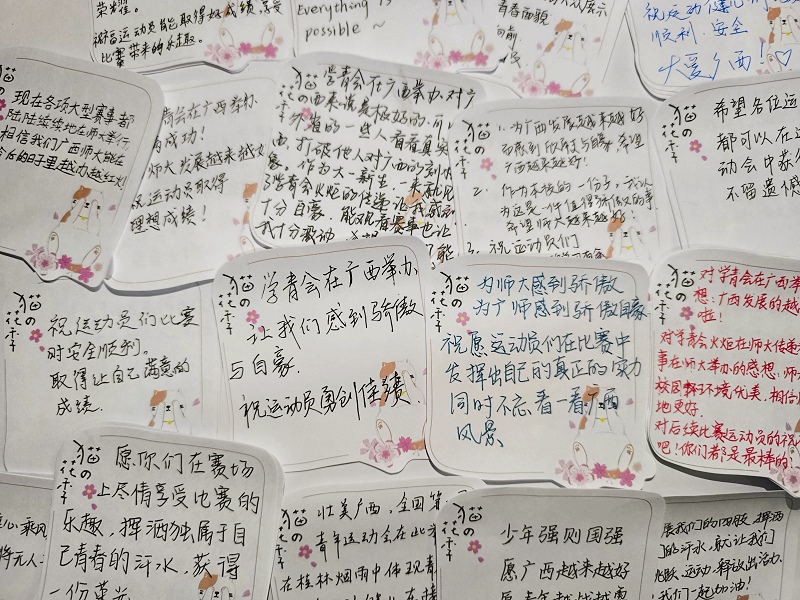 荣耀。
祝福运动员能取得好成绩,享受
比赛带来的乐趣。
Everything is
possible ~
展示
青春面貌
向前
祝运动健儿们
顺利,安全
大爱广西!♡
猫の花季
现在各项大型赛事都
陆陆续续地在师大举行
相信我们广西师大能在
今后的日子里越办越红火!
青会在广西举办
成功!
师大发展越来越
祝运动员取得
理想成绩!
猫の花季
学青会在广西举办,对广
西来说
的一些人看看真实
打破他人对广西的刻
作为大一新生,一来就见
学青会火炬的传递让我感到
十分自豪,能观看赛事也让
我十分激动
猫の花季
1. 为广西发展越来越好
而感到欣慰与骄傲,希望
广西越来越好!
2. 作为本校的一份子,我认
为这是一件值得骄傲的事
希望师大越来越好!
3. 祝运动员们
猫の花季
希望各位运
都可以在运
动会中获
不留遗憾
猫の花季
祝运动员们比赛
时安全顺利。
取得让自己满意的
成绩.
猫の花季
学青会在广西举办
让我们感到骄傲
与自豪.
祝运动员勇创佳绩.
猫の花季
为师大感到骄傲
为广师感到骄傲自豪
祝愿运动员们在比赛中
发挥出自己的真正的实力
同时不忘看一看广西
风景
猫の花季
对学青会在广西举
想:广西发展的越
啦!
对学青会火炬在师大传递
事在师大举办的感想:师
校园环境优美,相信
地更好.
对后续比赛运动员的祝
吧!你们都是最棒的!
猫の花季
愿你们在赛场
上尽情享受比赛的
乐趣,挥洒独属于自
己青春的汗水,获得
一份荣光
乘风
将无人
猫の花季
壮美广西,全国
青年运动会在此
在桂林烟雨中体现青
猫の花季
少年强则国强
愿广西越来越好
愿青年越战越勇
展我们的四肢,挥洒
们的汗水,就让我们
运动,释放出活力
我们一起加油!